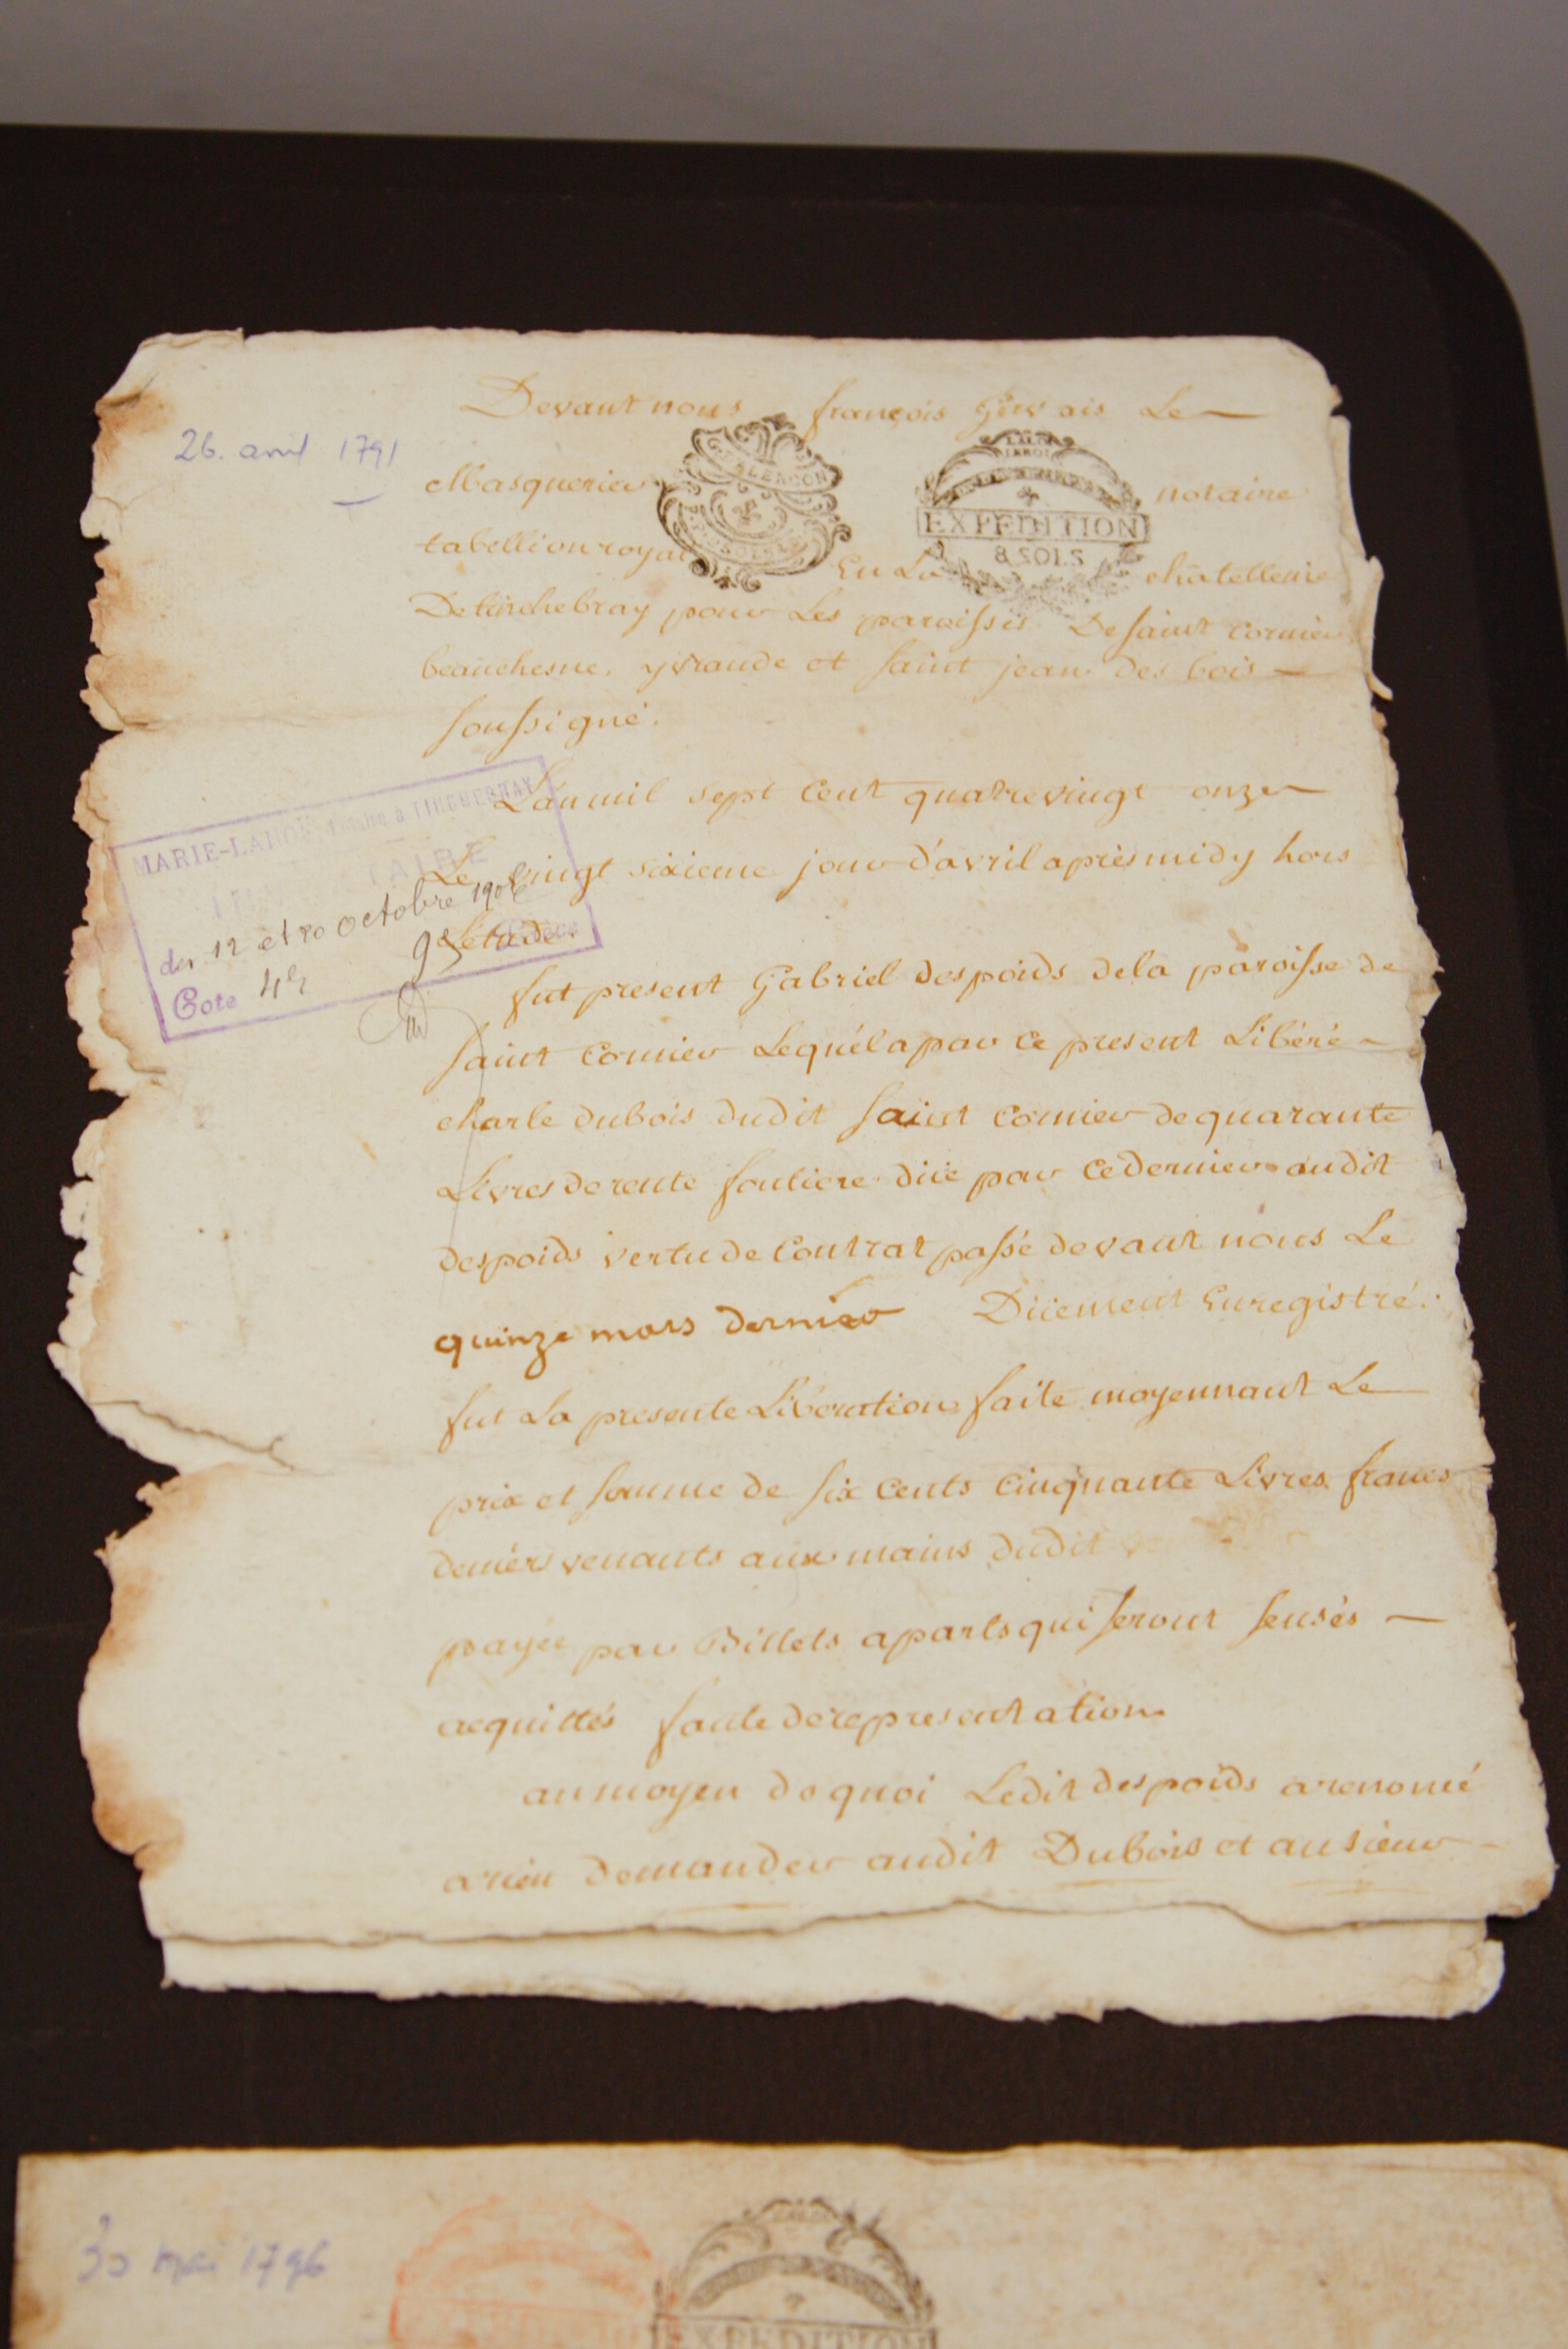 26. avril 1791
Devant nous françois Gervais Le
Masquerier notaire
G. ALENCON
LA LOI
LE ROI
EXPEDITION
8 SOLS
tabellion royal En La châtellenie
De tinchebray pour Les paroisses De saint Cornier
beauchesne, yvrande et saint jean des bois
soussigné.
L'an mil sept Cent quatrevingt onze
Le vingt sixieme jour d'avril après midy hors
L'étude.
MARIE-LAHOR notaire à TINCHEBRAY
INVENTAIRE
des 12 et 20 Octobre 1906
Cote 44 9e Pièce
fut present Gabriel despoids dela paroisse de
saint Cornier Lequel a par Ce present Libéré
charle dubois dudit saint Cornier de quarante
Livres de rente fonciere düe par Cedernier audit
despoids vertu de Contrat passé devant nous Le
quinze mars dernier Düement Enregistré.
fut La presente Liberation faite moyennant Le
prix et somme de six Cents Cinquante Livres francs
deniers venants aux mains dudit
payée par Billets aparts qui seront sensés
acquittés faute de representation
au moyen de quoi Ledit despoids a renoncé
a rien demander audit Dubois et au sieur
30 mai 1796
EXPEDITION
EXPEDITION